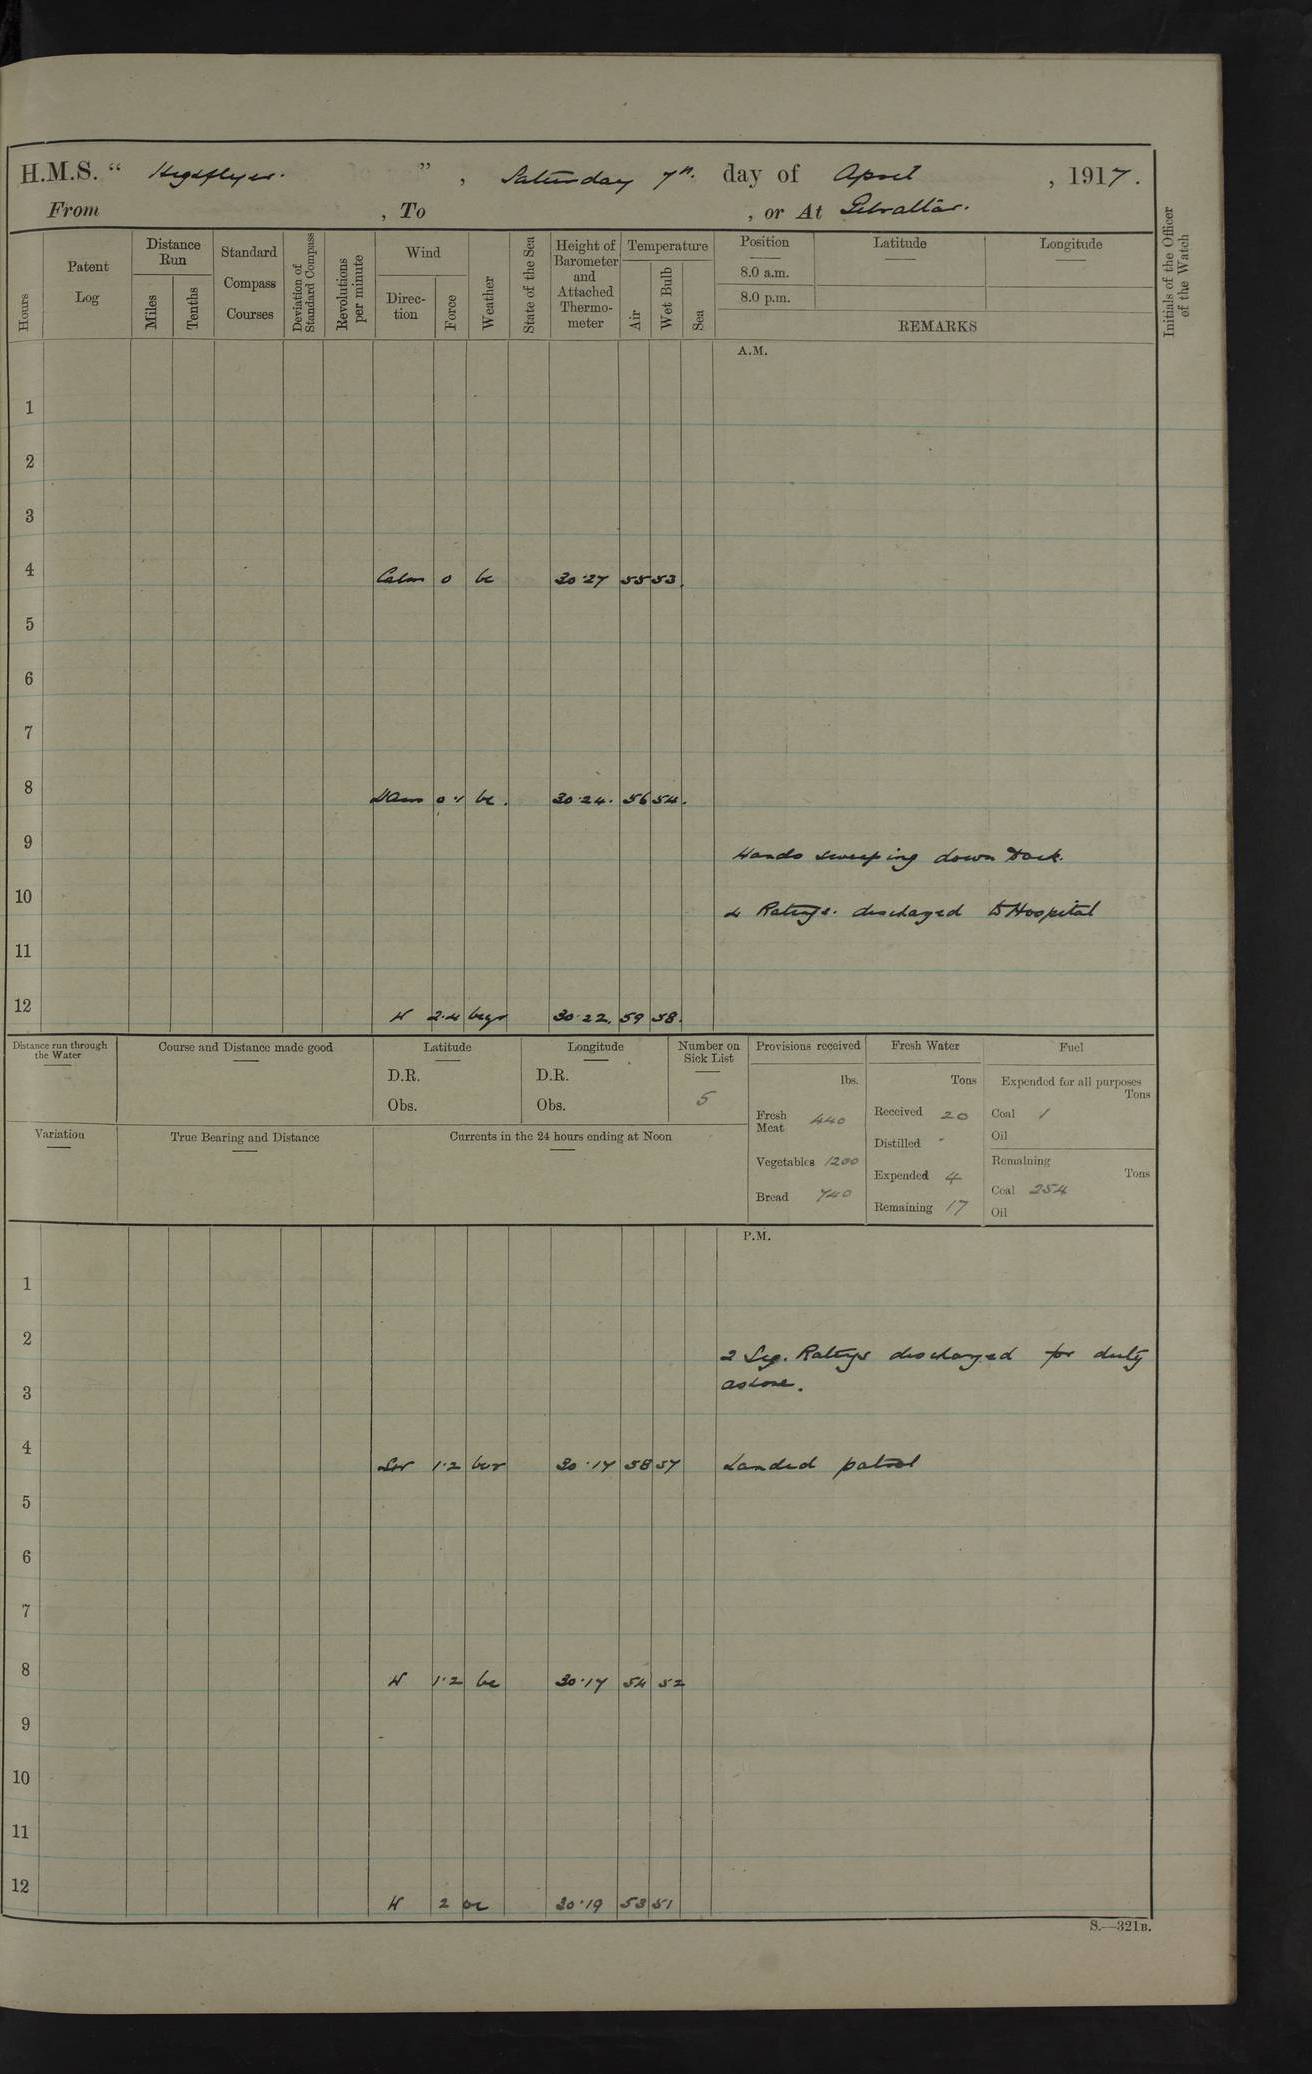 H.M.S. “ Highflyer. ” , Saturday 7th. day of April , 1917.
From , To , or At Gibraltar.
Hours
Patent Log
Distance Run
Miles
Tenths
Standard Compass Courses
Deviation of Standard Compass
Revolutions per minute
Wind
Direction
Force
Weather
State of the Sea
Height of Barometer and Attached Thermometer
Temperature
Air
Wet Bulb
Sea
Position
8.0 a.m.
8.0 p.m.
Latitude
Longitude
REMARKS
Initials of the Officer of the Watch
A.M.
1
2
3
4 Calm 0 bc 30.27 55 53.
5
6
7
8 0.1 bc. 30.24. 56 54.
9 Hands sweeping down Dock.
10 4 Ratings. discharged to Hospital
11
12 W 2.4 30.22. 59 58.
Distance run through the Water
Course and Distance made good
Latitude
D.R.
Obs.
Longitude
D.R.
Obs.
Number on Sick List
5
Provisions received
lbs.
Fresh Meat 440
Vegetables 1200
Bread 740
Fresh Water
Tons
Received 20
Distilled -
Expended 4
Remaining 17
Fuel
Expended for all purposes
Tons
Coal 1
Oil
Remaining
Tons
Coal 254
Oil
Variation
True Bearing and Distance
Currents in the 24 hours ending at Noon
P.M.
1
2 2 Sig. Ratings discharged for duty
3 ashore.
4 SW 1.2 bcr 30.17 58 57 Landed patrol
5
6
7
8 W 1.2 bc 30.17 54 52
9
10
11
12 W 2 bc 30.19 53 51
S.—321B.